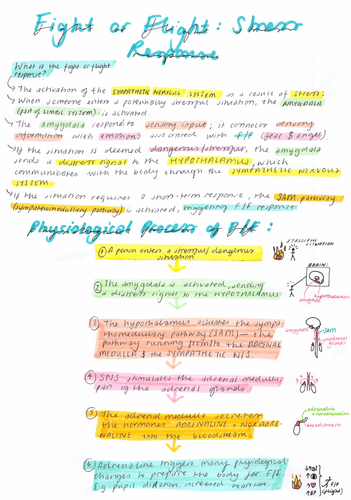 Fight or Flight: Stress
Response
What is the fight or flight
response?
The activation of the SYMPATHETIC NERVOUS SYSTEM as a result of stress.
When someone enters a potentially stressful situation, the AMYGDALA
(part of limbic system) is activated
The amygdala responds to sensory input; it connects sensory
information with emotions associated with F/F (fear & anger)
If the situation is deemed dangerous/stressful, the amygdala
sends a distress signal to the HYPOTHALAMUS, which
communicates with the body through the SYMPATHETIC NERVOUS
SYSTEM
If the situation requires a short-term response, the SAM pathway
(sympathomedullary pathway) is activated, triggering F/F response
Physiological Process of F/F:
1 A person enters a stressful/dangerous
situation
STRESSFUL
SITUATION
2 The amygdala is activated, sending
a distress signal to the HYPOTHALAMUS
BRAIN:
amygdala
hypothalamus
3 The hypothalamus activates the sympa-
thomedullary pathway (SAM) — the
pathway running from/to the ADRENAL
MEDULLA & the SYMPATHETIC N.S.
amygdala
adrenal
glands
4 SNS stimulates the adrenal medulla,
part of the adrenal glands.
5 The adrenal medulla secretes
the hormones ADRENALINE & NORADRE-
NALINE into the bloodstream
adrenaline
+ noradrenaline
bloodstream
6 Adrenaline triggers many physiological
changes to prepare the body for F/F.
E.g pupil dilation, increased
F/F
(flight)